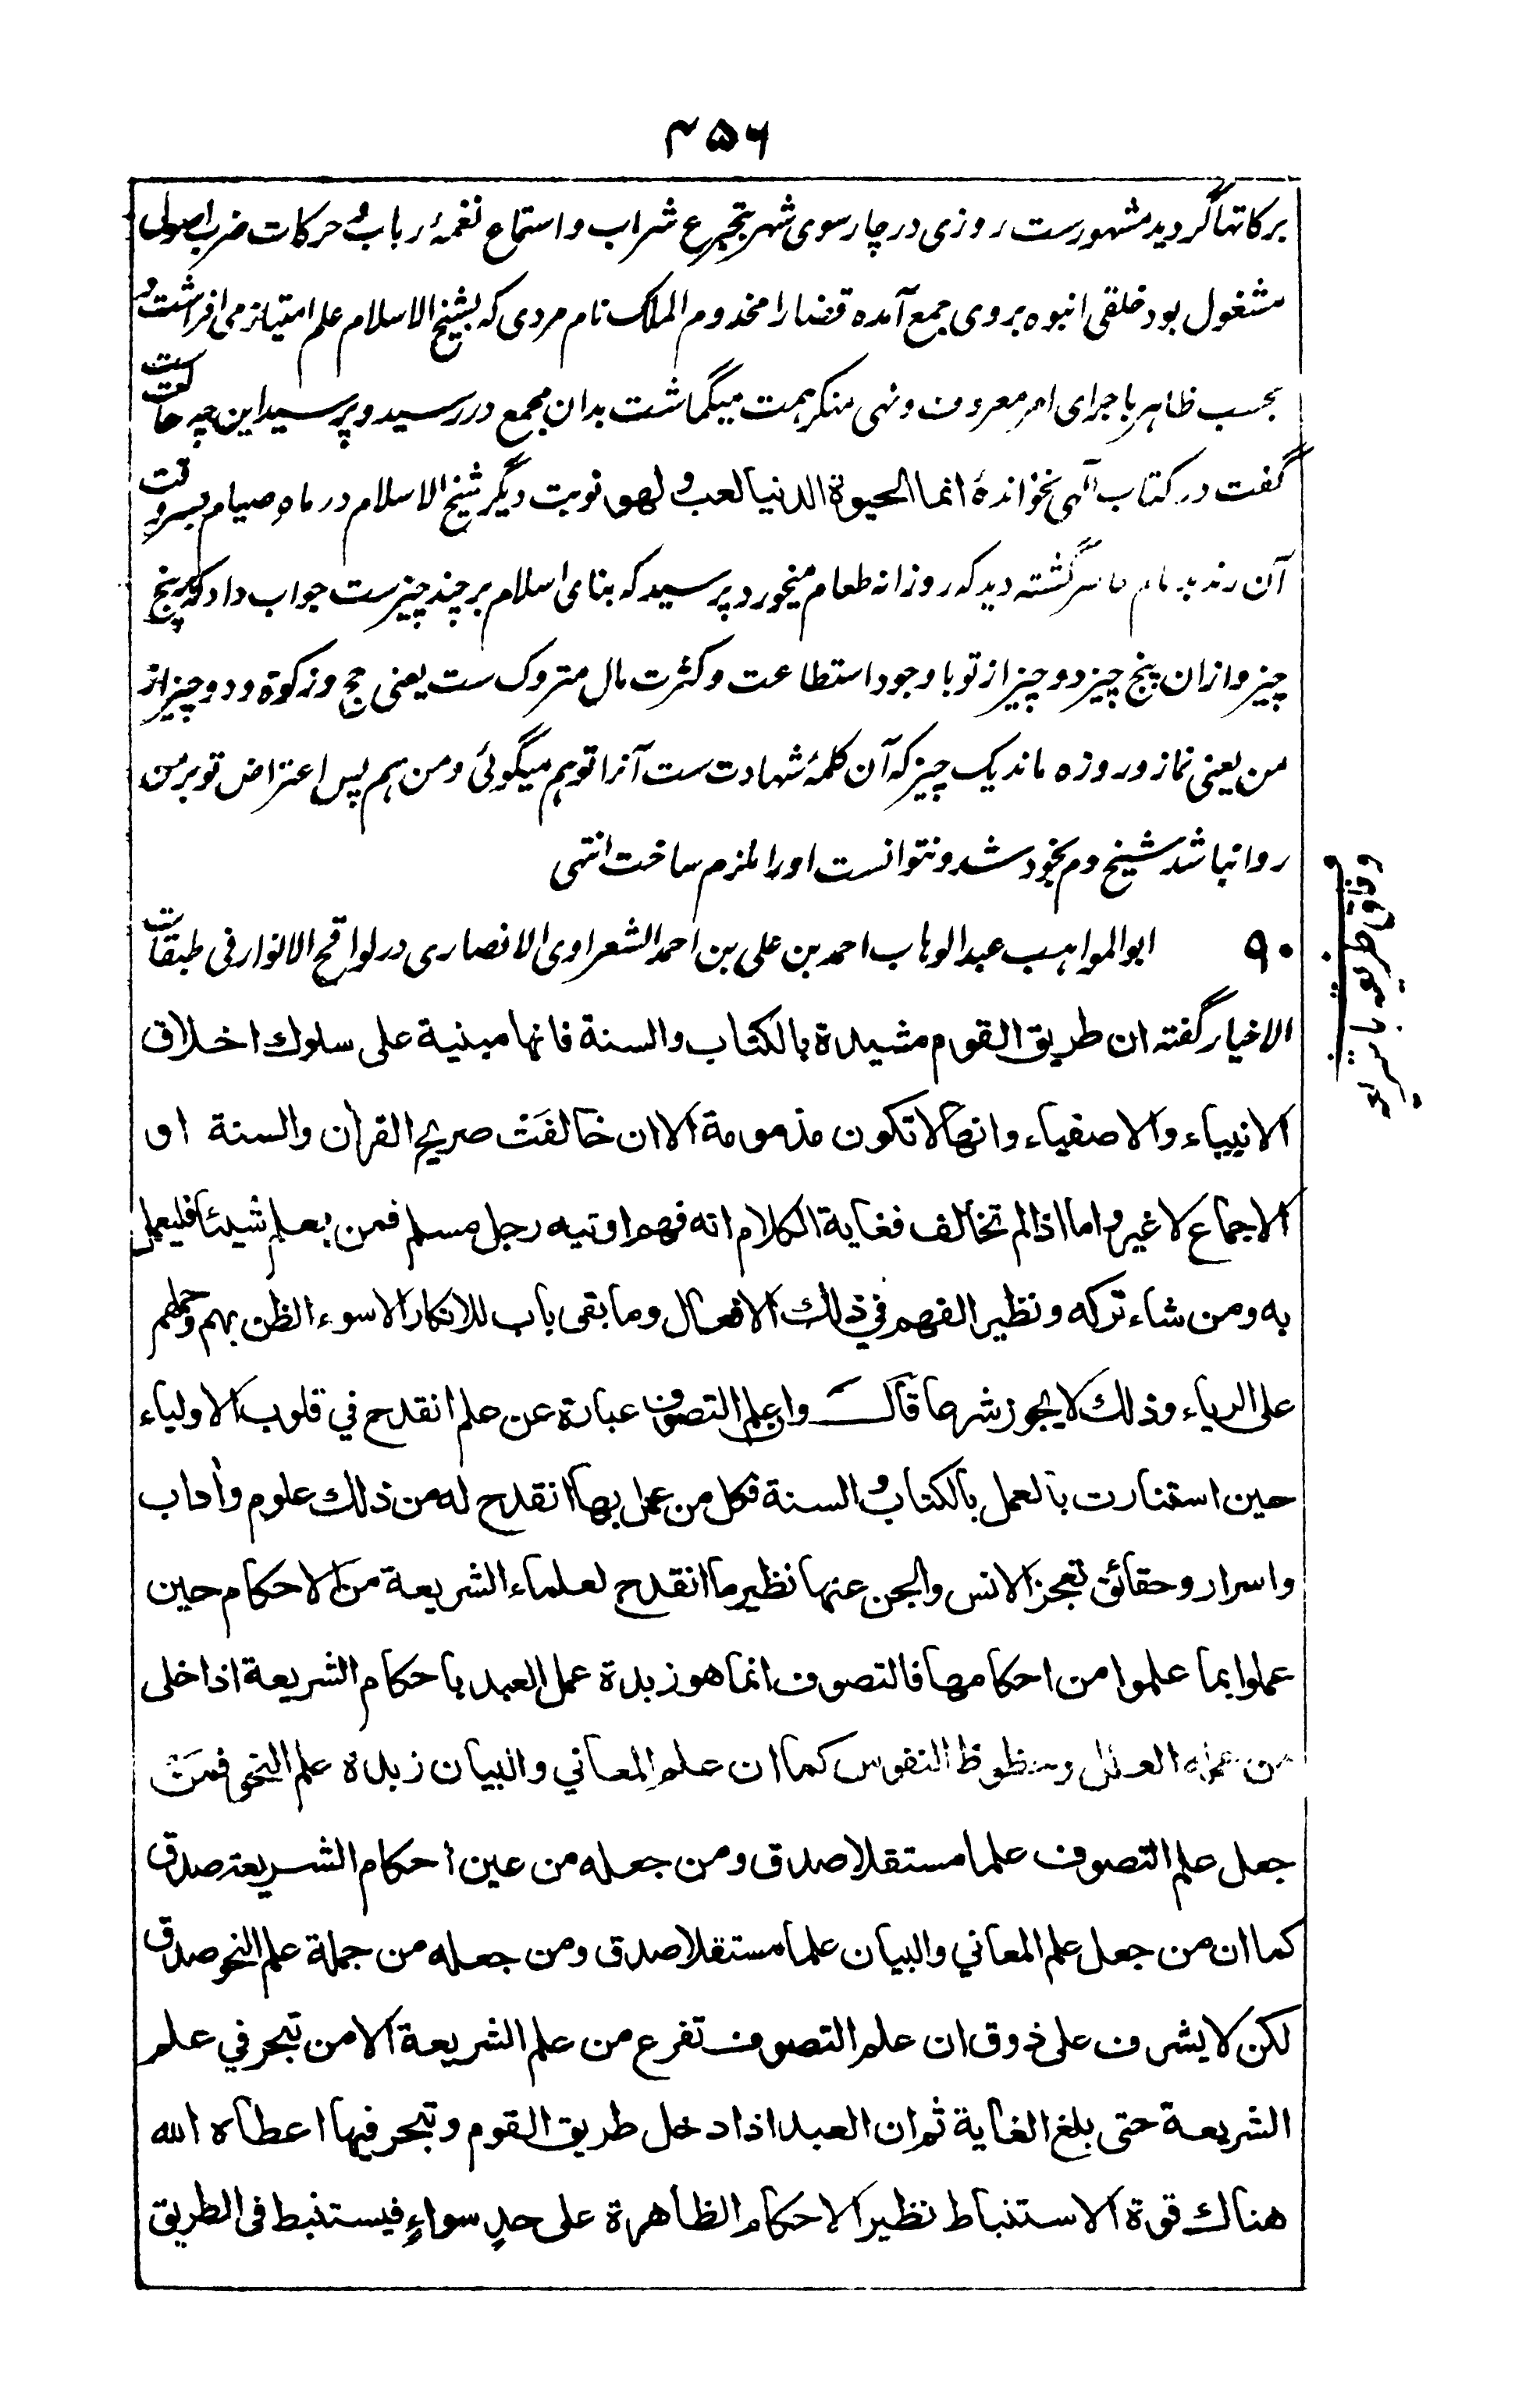 ۴۵۶
برکاتها گردید مشهورست روزی در چارسوی شهر بتجرع شراب و استماع نغمهٔ رباب و حرکات ضرب اصولی
مشغول بود خلقی انبوه بروی جمع آمده قضارا مخدوم الملک نام مردی که بشیخ الاسلام علم امتیاز می افراشت و
بحسب ظاهر باجرای امر معروف و نهی منکر همت میگماشت بدان مجمع در رسید و پرسید این چه حالتست
گفت در کتاب الهی نخواندهٔ انما الحیوة الدنیا لعب و لهو نوبت دیگر شیخ الاسلام در ماه صیام بسروقت
آن رند سرگشته دید که روزانه طعام میخورد پرسید که بنای اسلام بر چند چیزست جواب داد که بر پنج
چیز و ازان پنج چیز دو چیز از تو با وجود استطاعت و کثرت مال متروک ست یعنی حج و زکوة و دو چیز از
من یعنی نماز و روزه ماند یک چیز که آن کلمهٔ شهادت ست آنرا تو هم میگوئی و من هم پس اعتراض تو بر من
روا نباشد شیخ دم بخود شد و نتوانست او را ملزم ساخت انتهی
۹۰ ابو المواهب عبد الوهاب احمد بن علی بن احمد الشعراوی الانصاری در لواقح الانوار فی طبقات
الاخیار گفته ان طریق القوم مشیدة بالکتاب والسنة فانها مبنیة علی سلوك اخلاق
الانبیاء والاصفیاء وانها لا تکون مذمومة الا ان خالفت صریح القرآن والسنة او
الاجماع لا غیر واما اذا لم تخالف فغایة الکلام انه فهم اوتیه رجل مسلم فمن یعلم شیئا فلیعمل
به ومن شاء ترکه ونظیر الفهم فی ذلك الافعال وما بقی باب للانکار الا سوء الظن بهم وحملهم
علی الریاء وذلك لا یجوز شرعا قال وان علم التصوف عبارة عن علم انقدح في قلوب الاولیاء
حین استنارت بالعمل بالکتاب والسنة فکل من عمل بهما انقدح له من ذلك علوم وآداب
واسرار وحقائق تعجز الانس والجن عنها نظیر ما انقدح لعلماء الشریعة من الاحکام حین
عملوا بما علموا من احکامها فالتصوف انما هو زبدة عمل العبد باحکام الشریعة اذا خلی
من عمله العلل وحظوظ النفوس کما ان علم المعاني والبیان زبدة علم النحو فمن
جعل علم التصوف علما مستقلا صدق ومن جعله من عین احکام الشریعة صدق
کما ان من جعل علم المعاني والبیان علما مستقلا صدق ومن جعله من جملة علم النحو صدق
لکن لا یشرف علی ذوق ان علم التصوف تفرع من علم الشریعة الا من تبحر في علم
الشریعة حتی بلغ الغایة ثم ان العبد اذا دخل طریق القوم وتبحر فیها اعطاه الله
هناك قوة الاستنباط نظیر الاحکام الظاهرة علی حد سواء فیستنبط فی الطریق
وفاق طریقت با شریعت